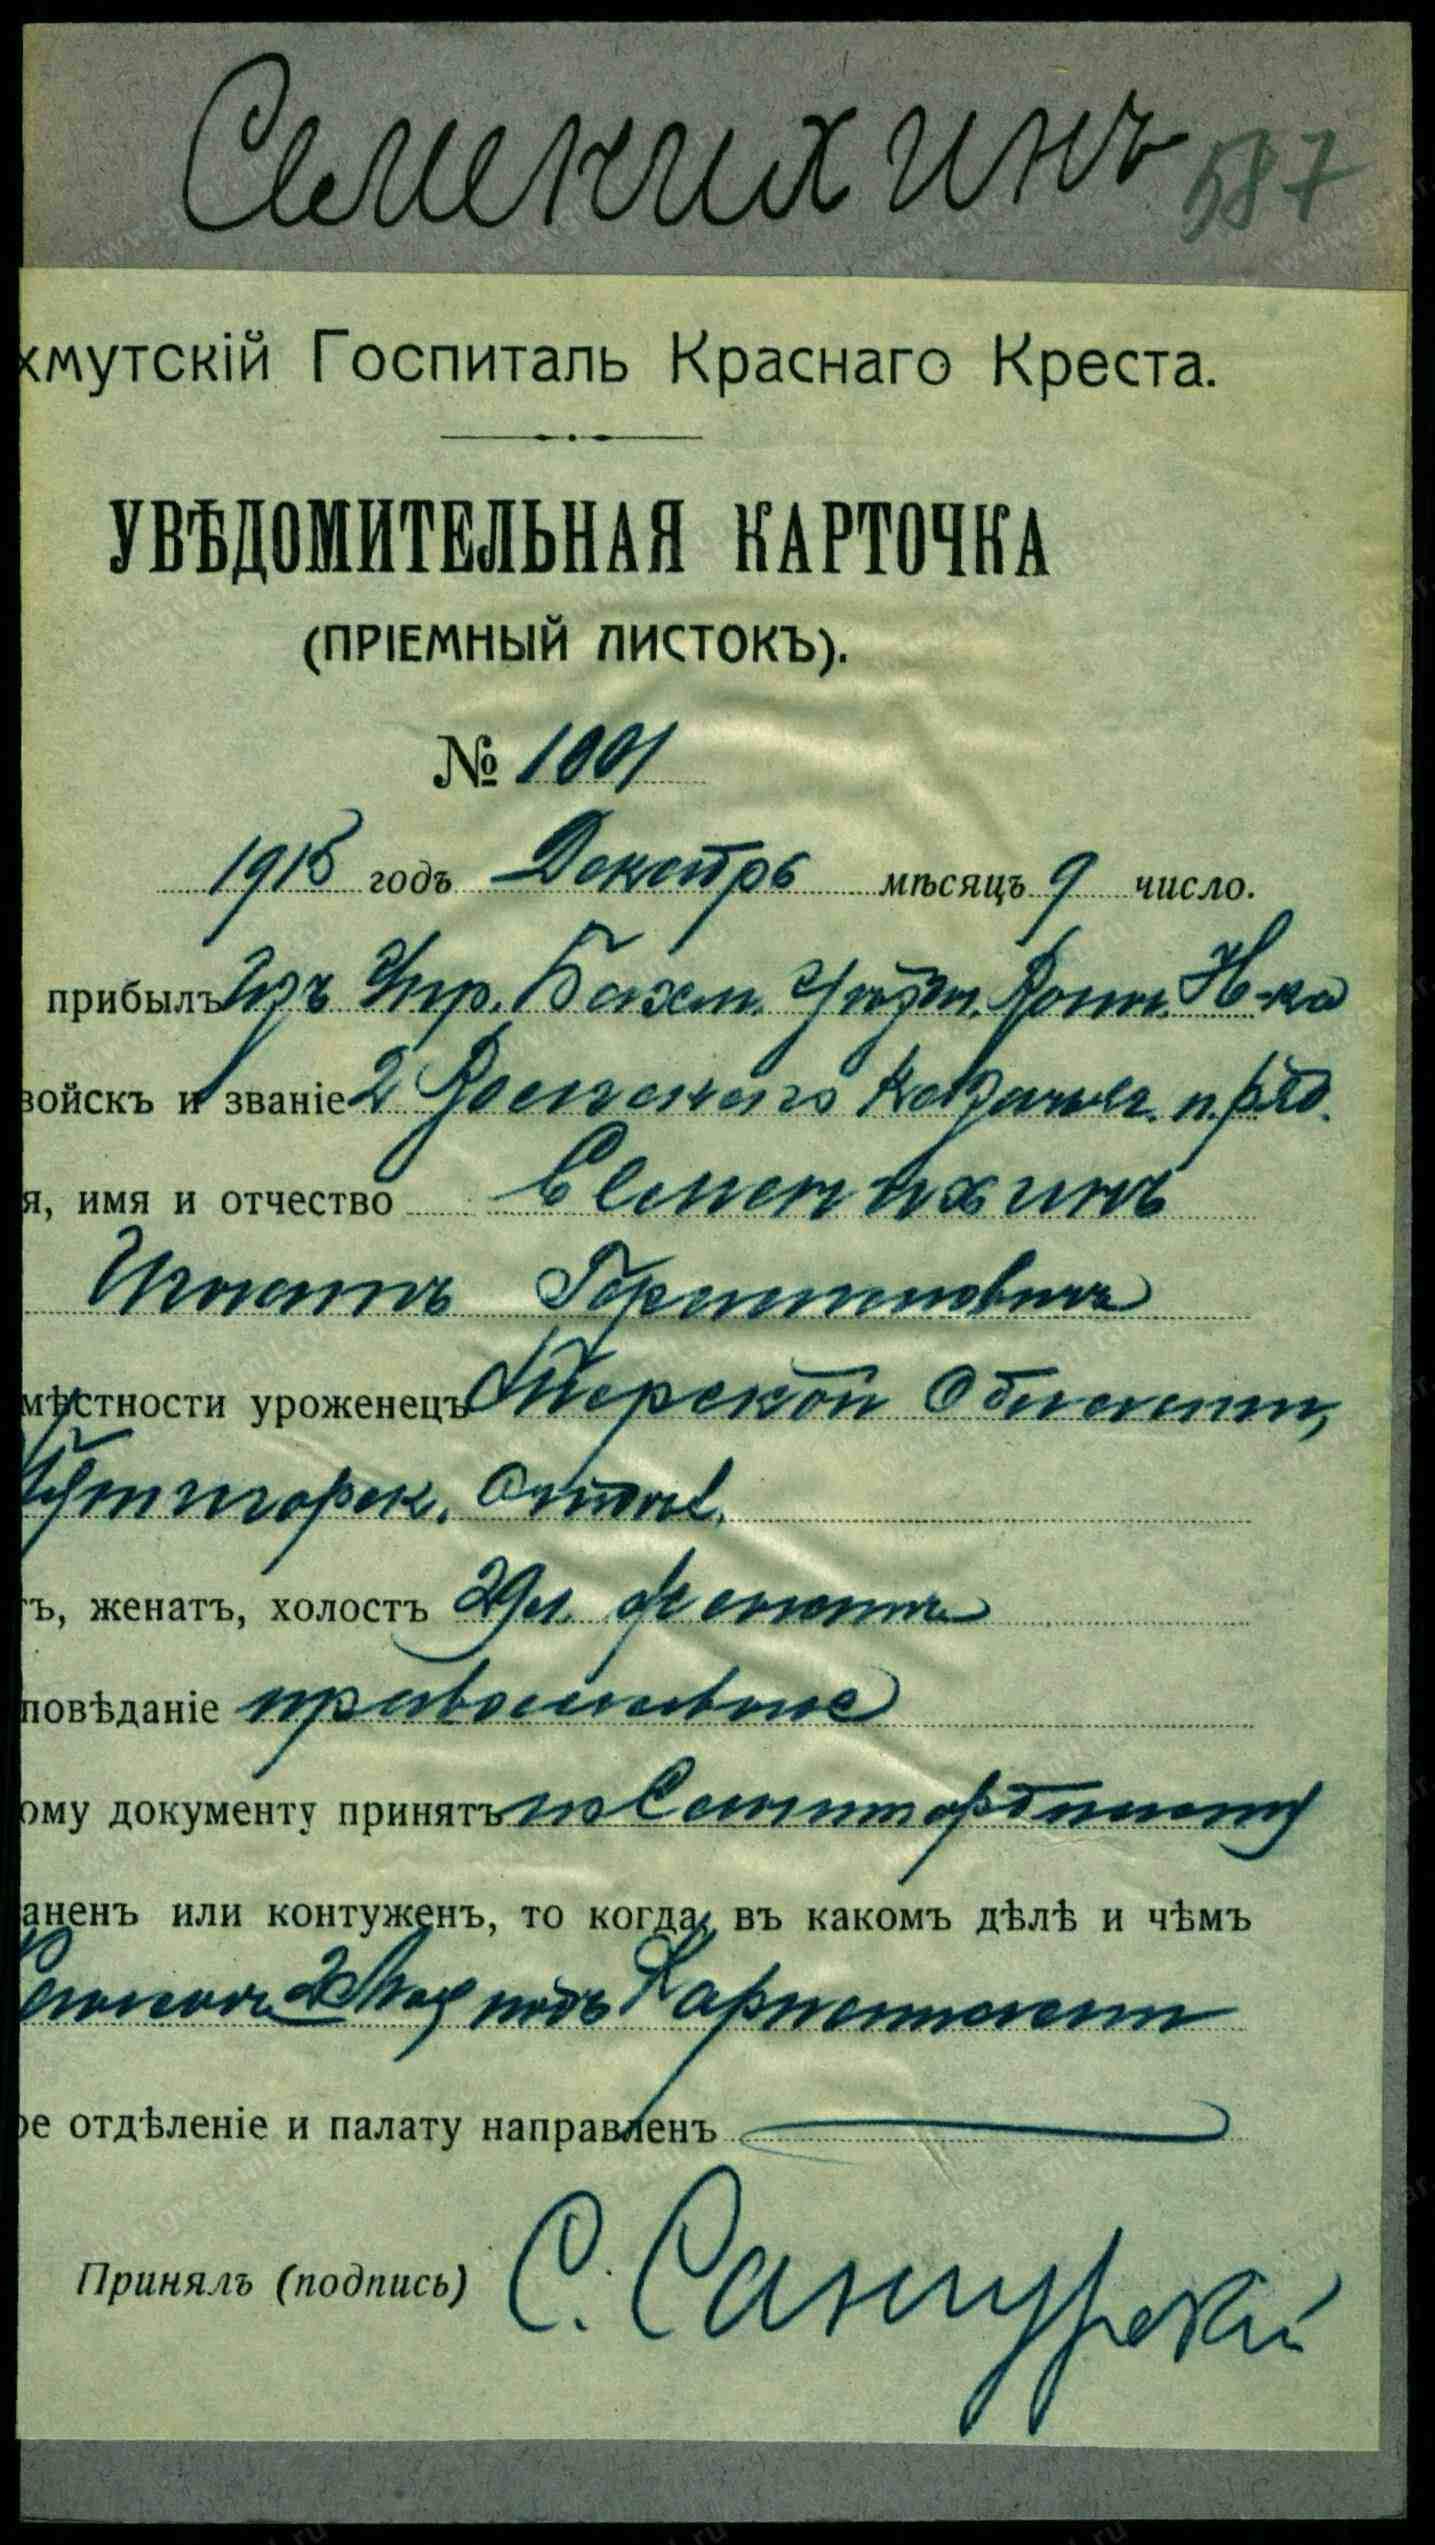 Семенихинъ 587
хмутскій Госпиталь Краснаго Креста.
УВѢДОМИТЕЛЬНАЯ КАРТОЧКА
(ПРІЕМНЫЙ ЛИСТОКЪ).
№ 1001
1915 годъ Декабрь мѣсяцъ 9 число.
прибылъ Изъ Упр. Бахм. Уѣздн. Воин. Н-ка
войскъ и званіе 2 Волгскаго Казачьяг. п. ряд.
я, имя и отчество Семенихинъ
Игнатъ
мѣстности уроженецъ Терской Области,
Пятигорск. Отдѣл.
ъ, женатъ, холостъ 29 л. женатъ
повѣданіе православное
ому документу принятъ по Санитарному
аненъ или контуженъ, то когда, въ какомъ дѣлѣ и чѣмъ
подъ Карпатами
ое отдѣленіе и палату направленъ
Принялъ (подпись) С.